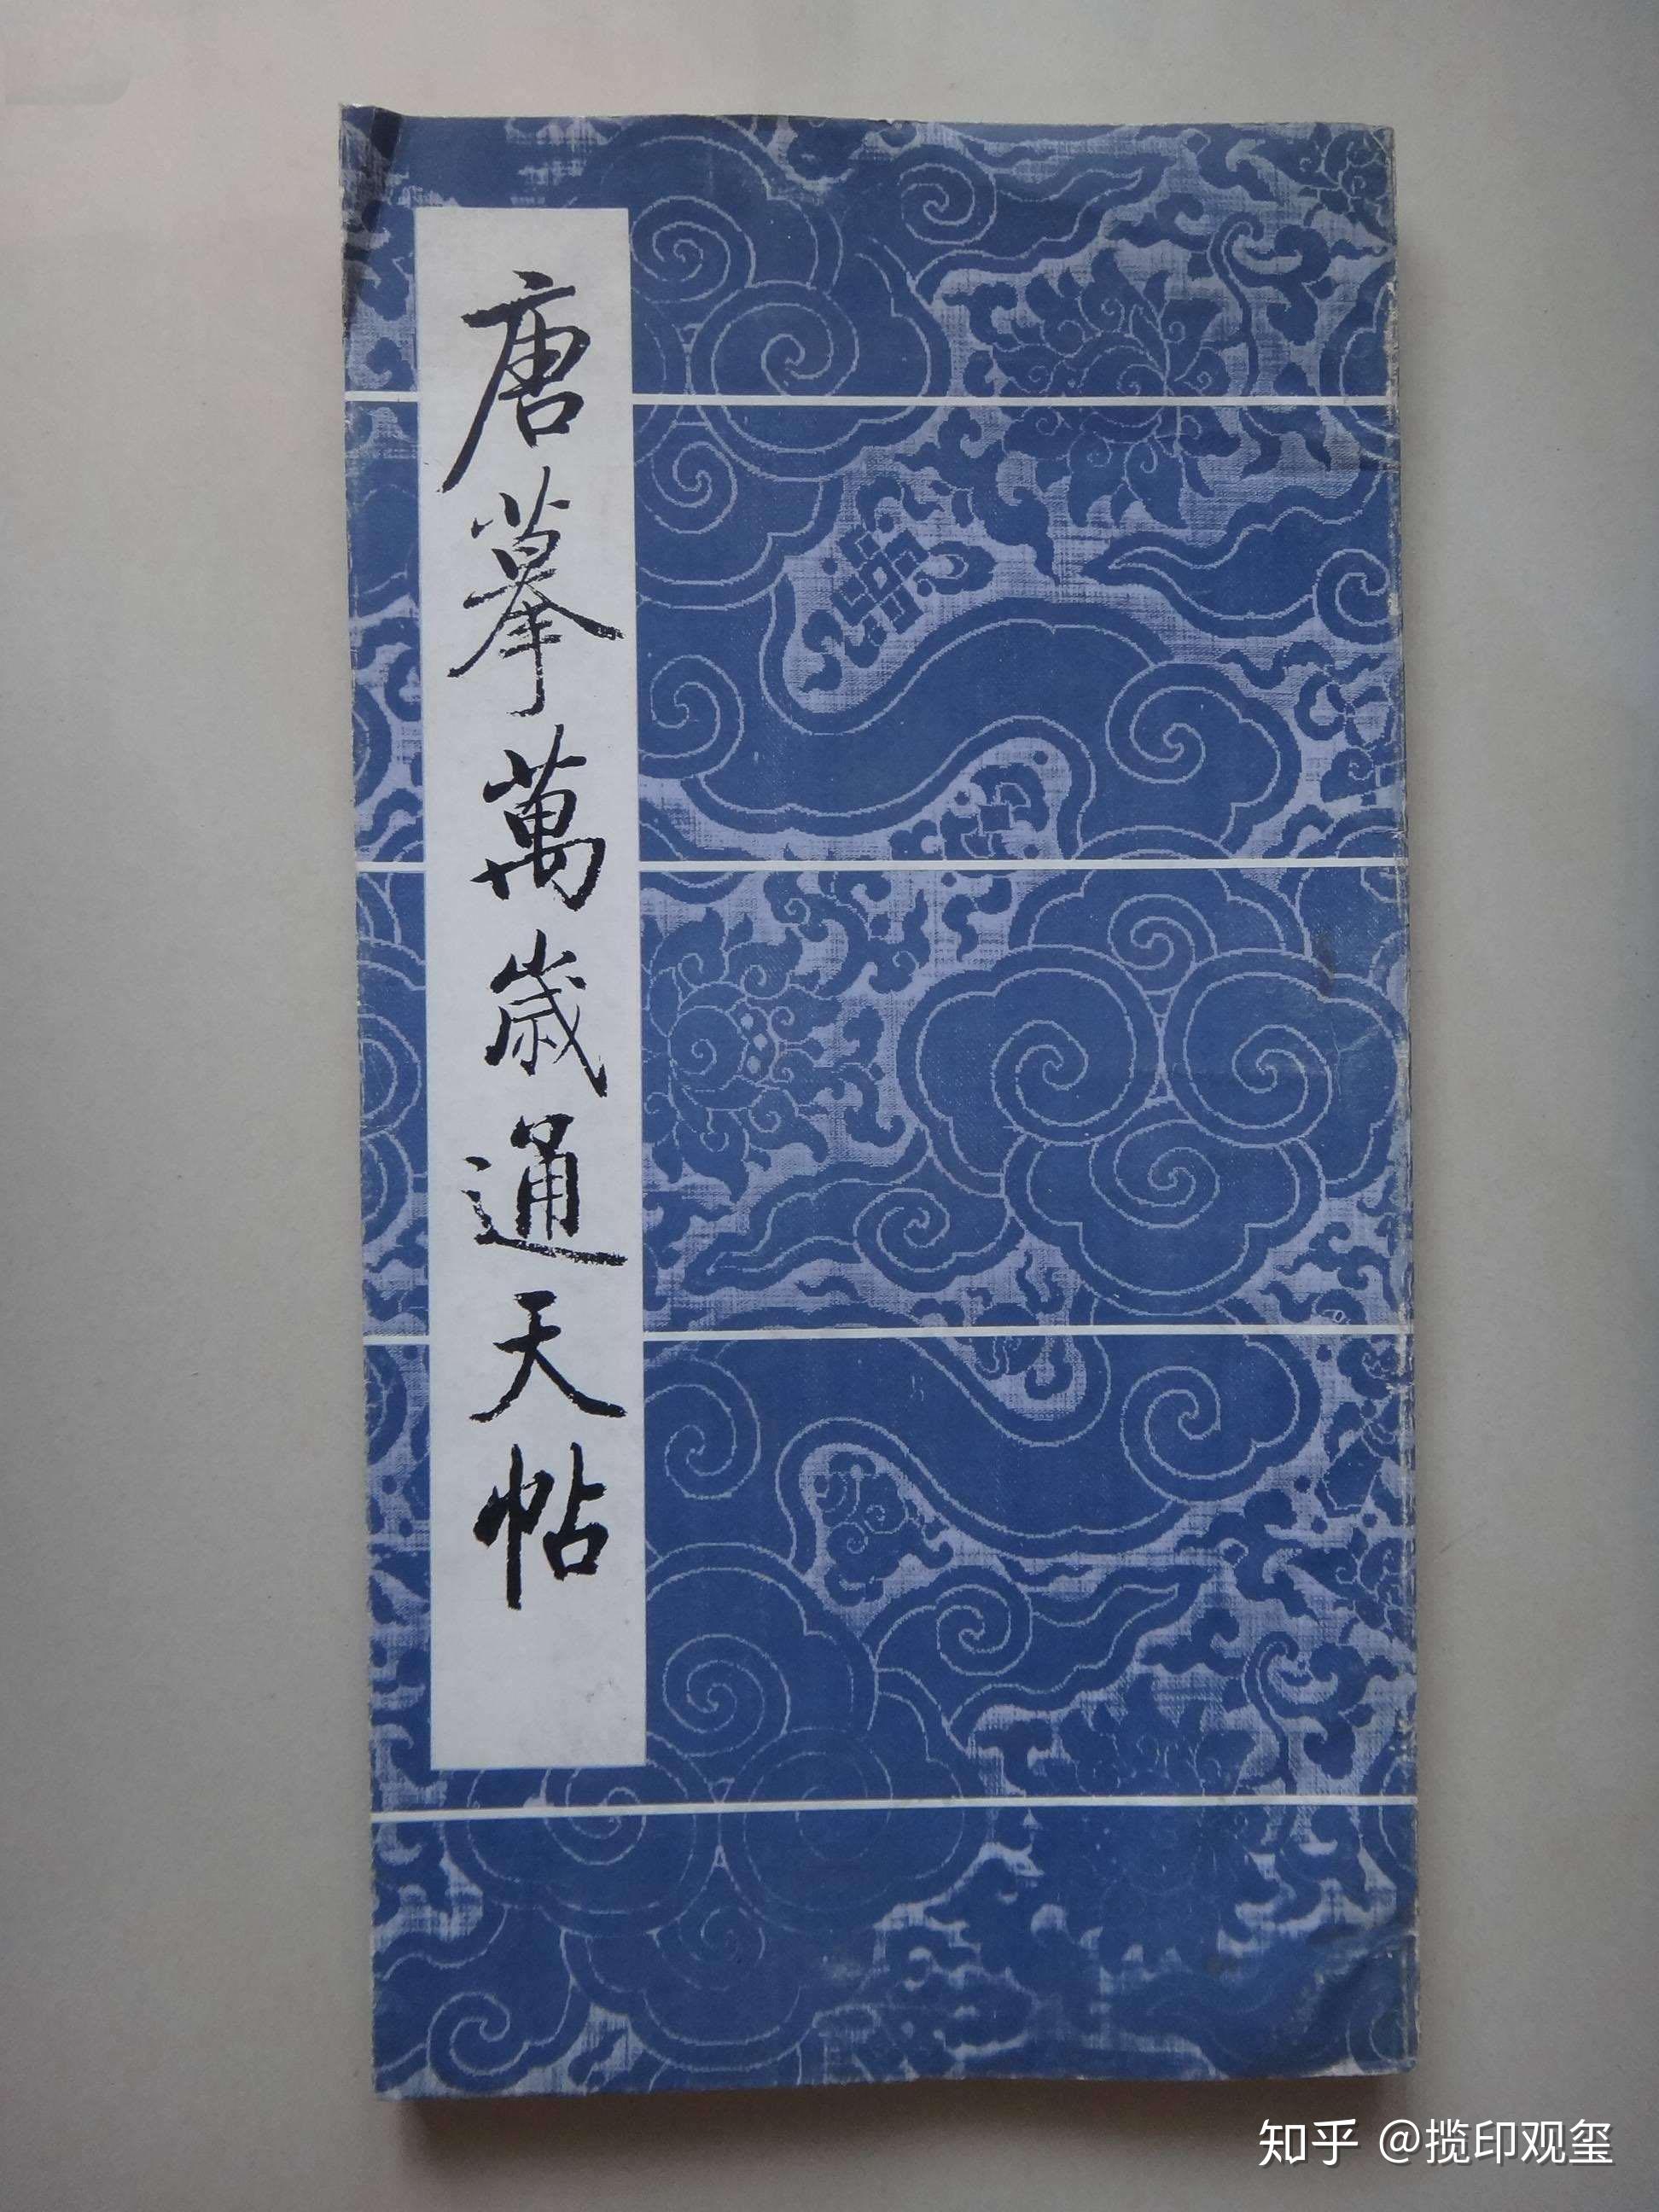 唐摹萬歲通天帖
知乎 @揽印观玺